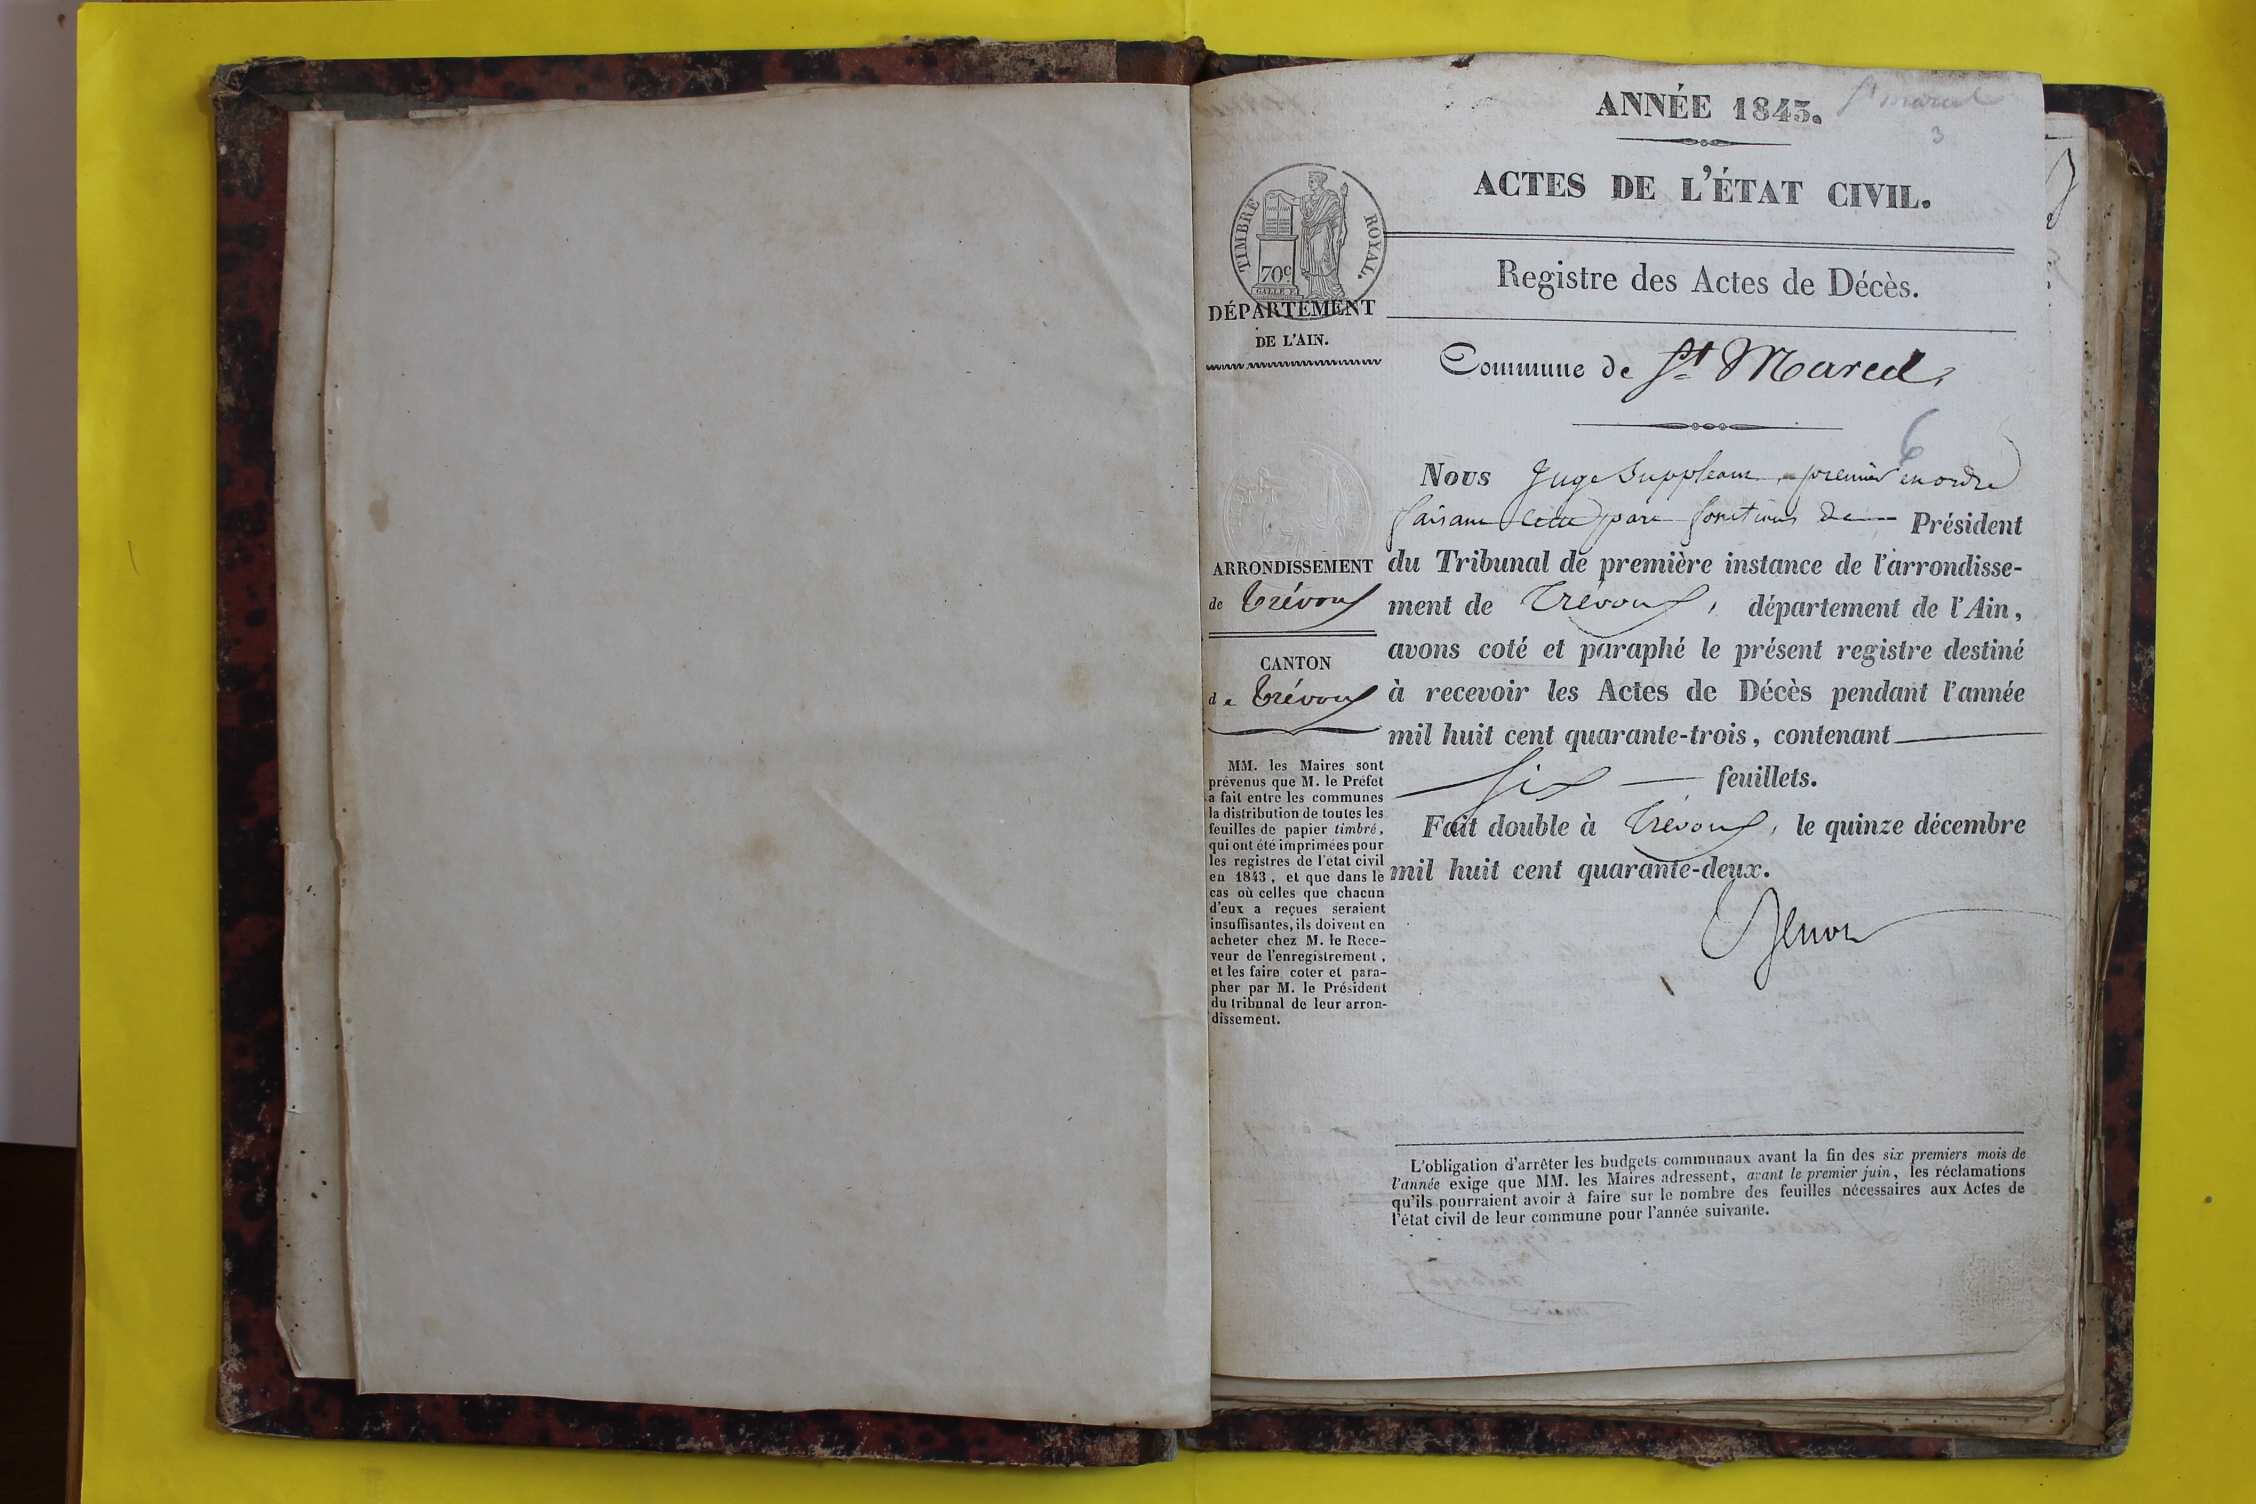 ANNÉE 1843. St marcel
3
ACTES DE L'ÉTAT CIVIL.
TIMBRE ROYAL.
70c
GALLE F.
Registre des Actes de Décès.
DÉPARTEMENT
DE L'AIN.
Commune de St Marcel,
6
Nous Juge Suppléant, premier en ordre
faisant fonctions de Président
du Tribunal de première instance de l'arrondisse-
ment de Trévoux, département de l'Ain,
avons coté et paraphé le présent registre destiné
à recevoir les Actes de Décès pendant l'année
mil huit cent quarante-trois, contenant
six feuillets.
Fait double à Trévoux, le quinze décembre
mil huit cent quarante-deux.
ARRONDISSEMENT
de Trévoux
CANTON
de Trévoux
MM. les Maires sont
prévenus que M. le Préfet
a fait entre les communes
la distribution de toutes les
feuilles de papier timbré,
qui ont été imprimées pour
les registres de l'état civil
en 1843, et que dans le
cas où celles que chacun
d'eux a reçues seraient
insuffisantes, ils doivent en
acheter chez M. le Rece-
veur de l'enregistrement,
et les faire coter et para-
pher par M. le Président
du tribunal de leur arron-
dissement.
L'obligation d'arrêter les budgets communaux avant la fin des six premiers mois de
l'année exige que MM. les Maires adressent, avant le premier juin, les réclamations
qu'ils pourraient avoir à faire sur le nombre des feuilles nécessaires aux Actes de
l'état civil de leur commune pour l'année suivante.